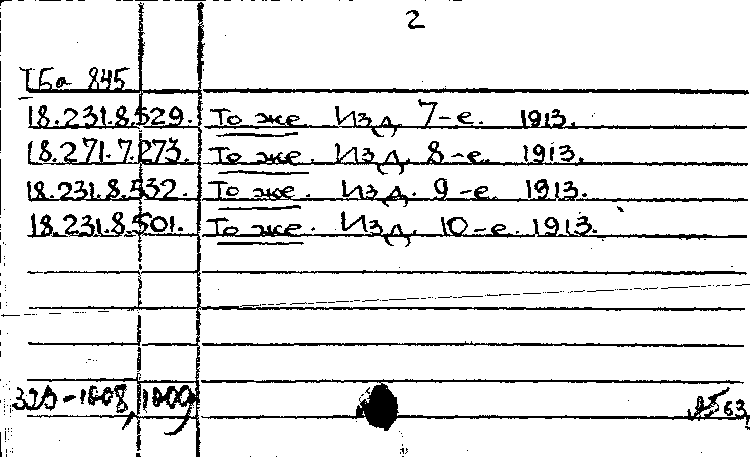 2
18.231.8.529. То же. Изд. 7-е. 1913.
18.271.7.273. То же. Изд. 8-е. 1913.
18.231.8.532. То же. Изд. 9-е. 1913.
18.231.8.501. То же. Изд. 10-е. 1913.
63